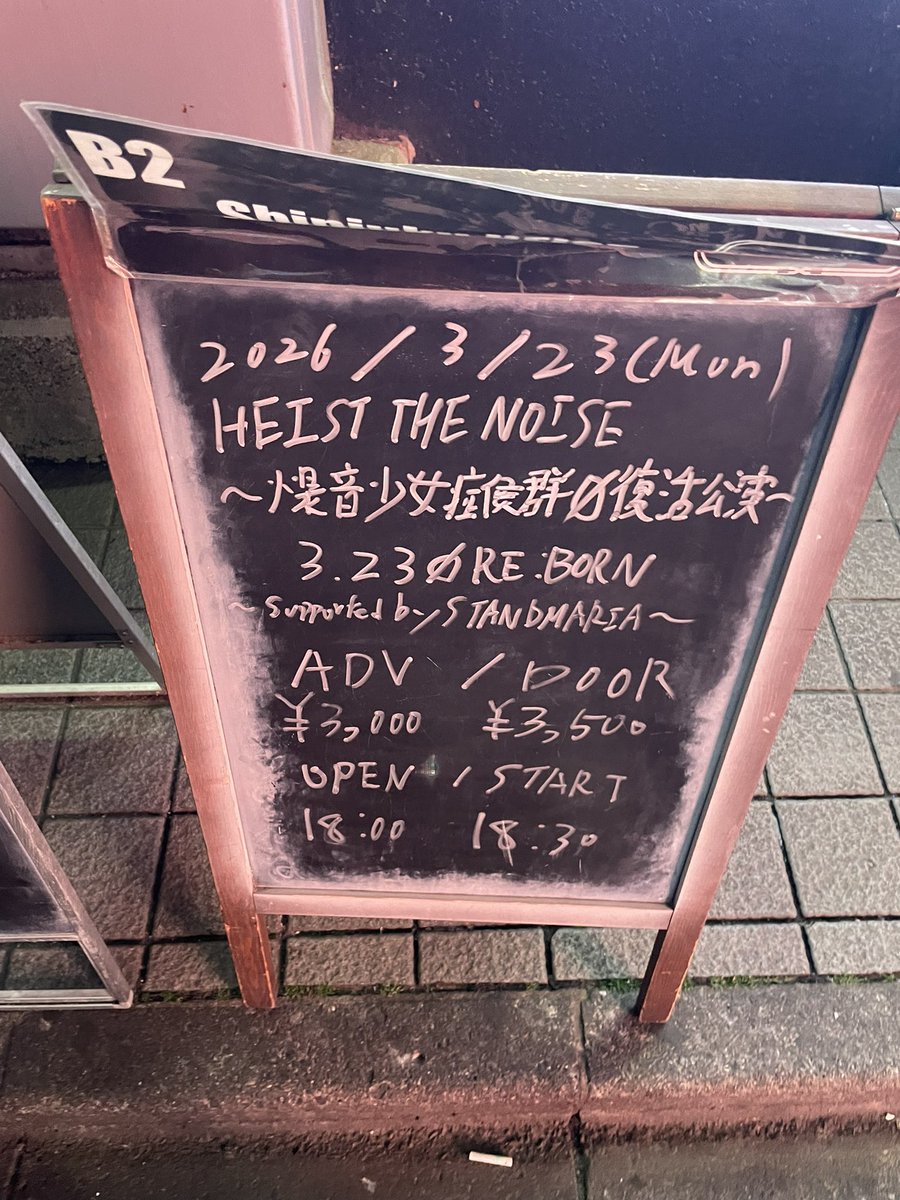 B2
2026/3/23(Mon)
HEIST THE NOISE
~爆音少女症候群Ø復活公演~
3.23Ø RE:BORN
~supported by STANDMARIA~
ADV / DOOR
¥3,000 ¥3,500
OPEN / START
18:00 18:30